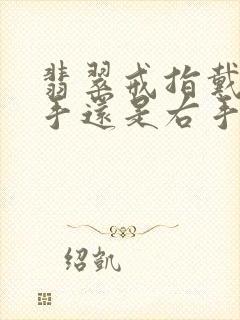 翡翠戒指戴
手還是右手
绍凯